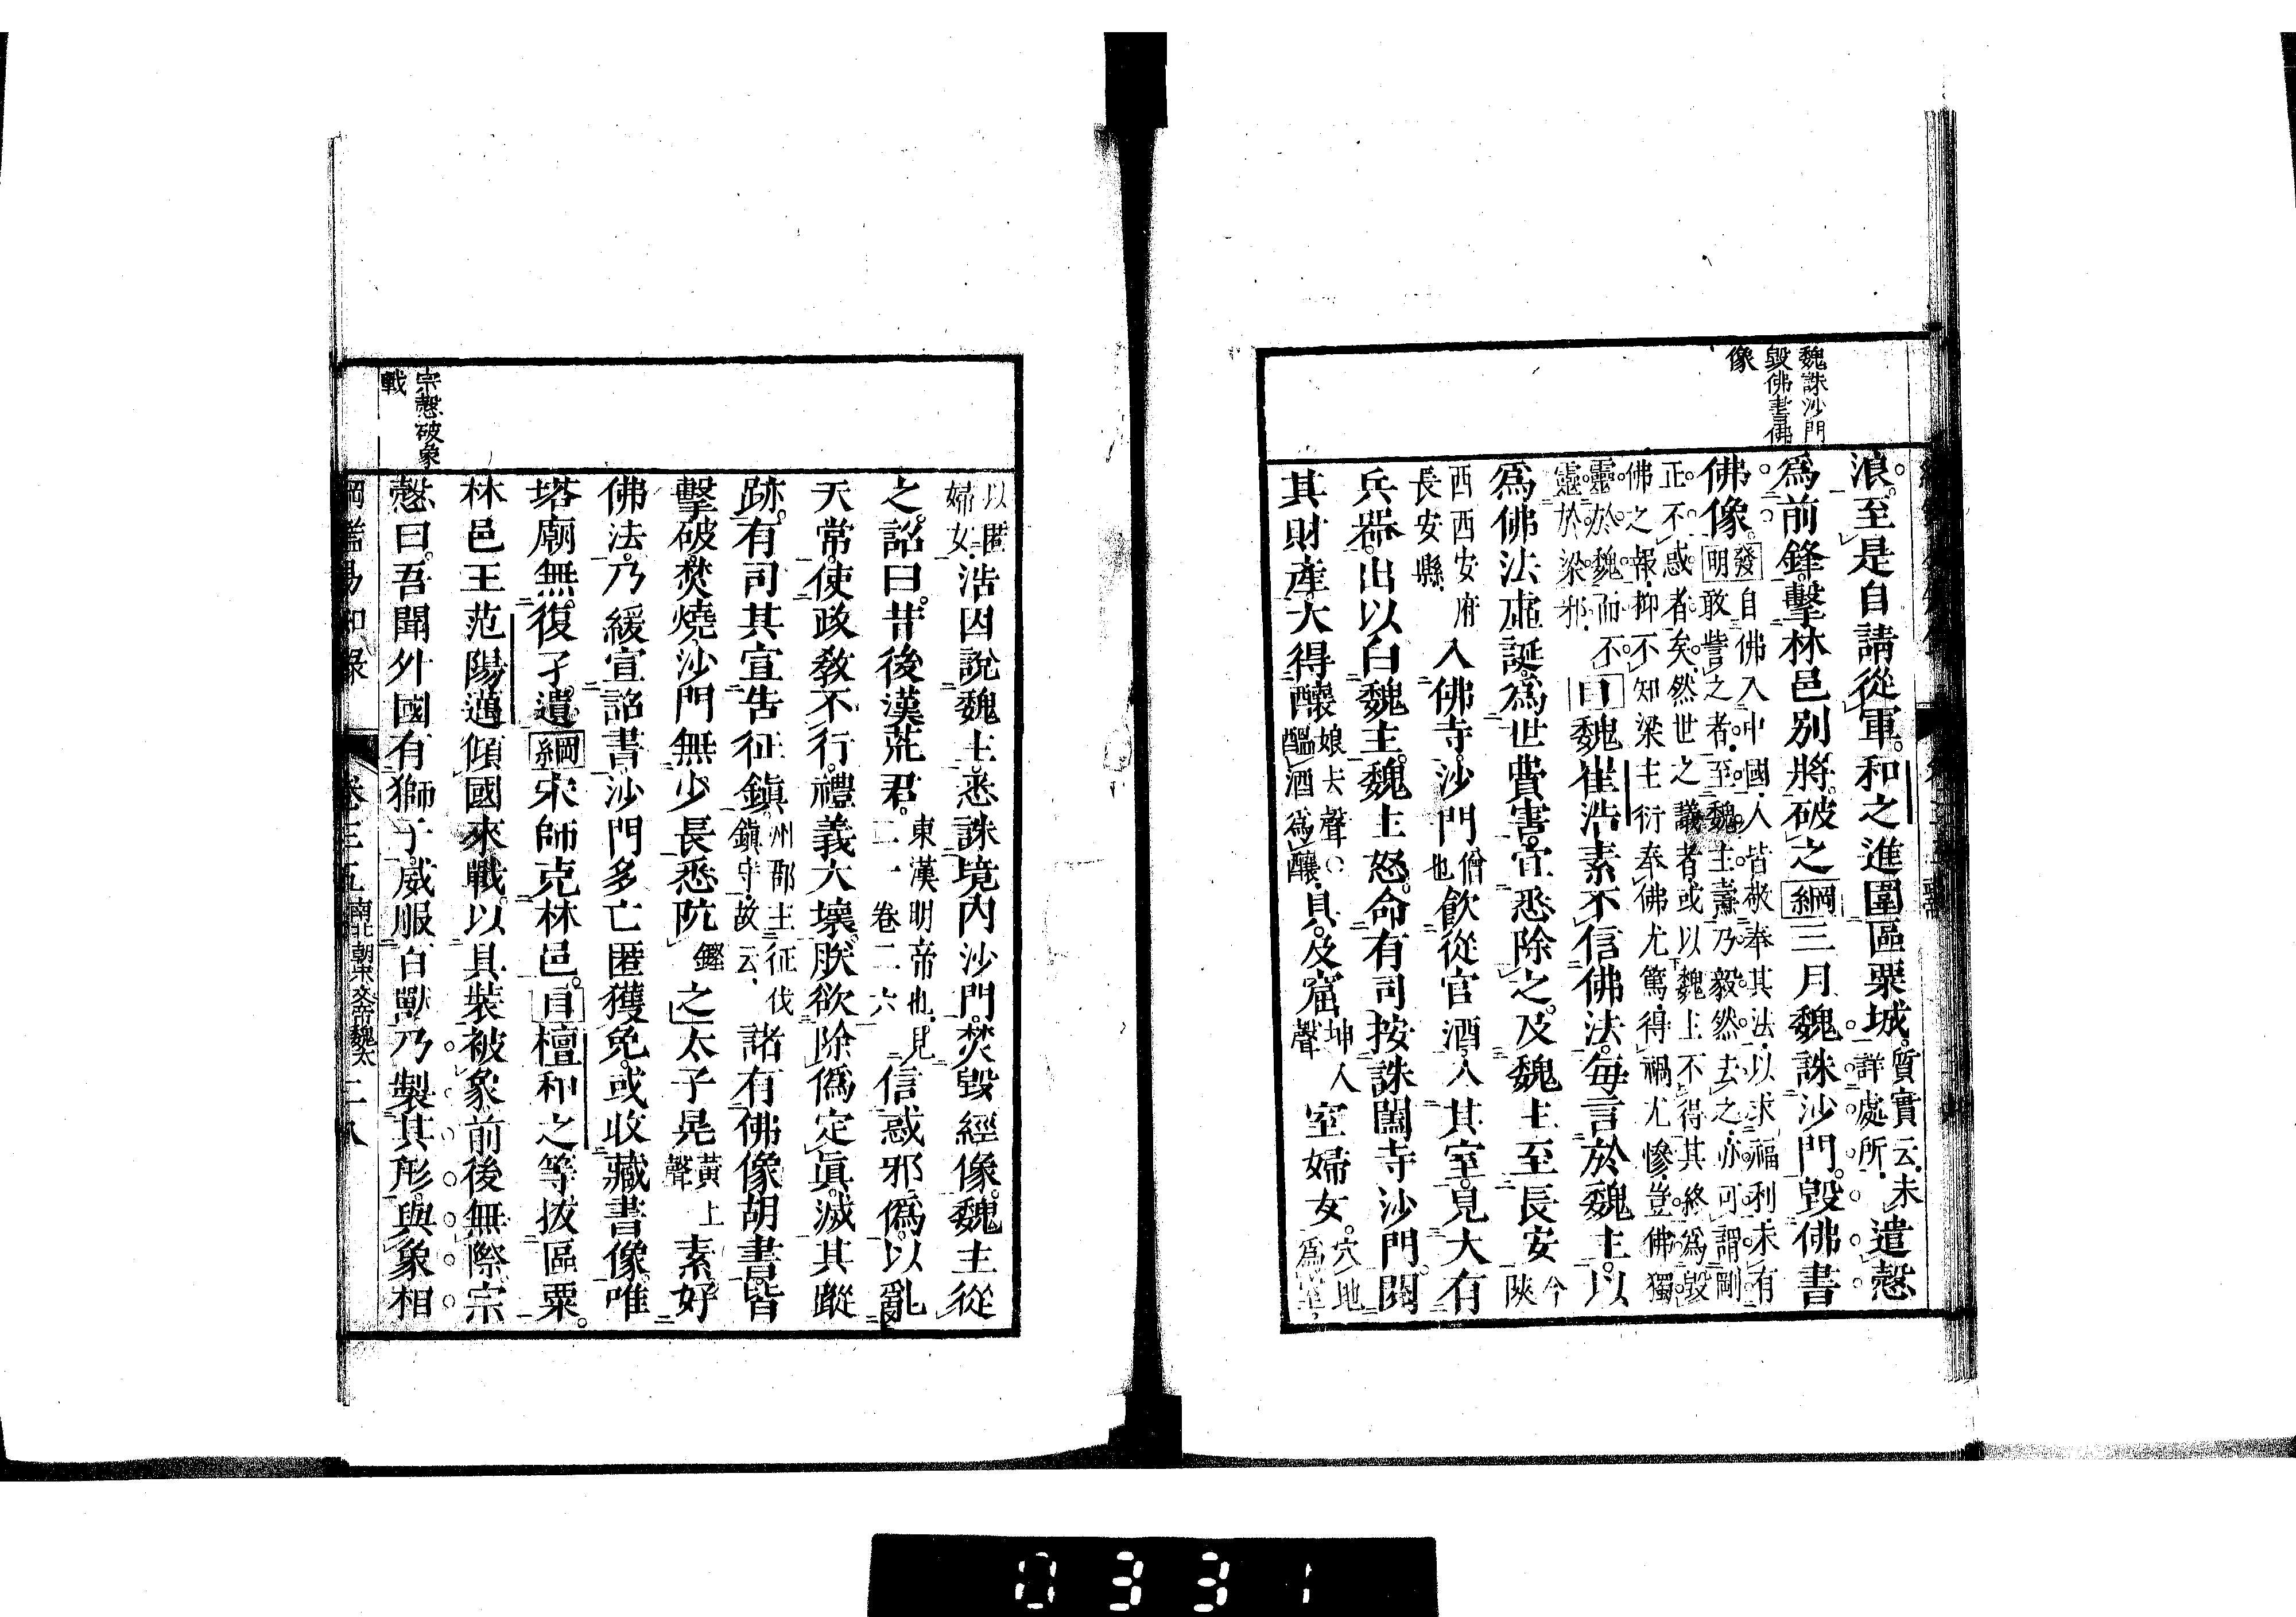 魏誅沙門
毀佛書佛
像
浪至是自請從軍和之進圍區粟城質實云未詳處所遣慤
爲前鋒擊林邑別將破之綱三月魏誅沙門毀佛書
佛像發明自佛入中國人皆敬奉其法以求福利未有
敢訾之者至魏主燾乃毅然去之亦可謂剛
正不惑者矣然世之議者或以魏上不得其終爲毀
佛之報抑不知梁主衍奉佛尤篤得禍尤慘豈佛獨
靈於魏而不
靈於梁邪
目魏崔浩素不信佛法每言於魏主以
爲佛法虛誕爲世費害宜悉除之及魏主至長安今陝
西西安府
長安縣
入佛寺沙門僧也飲從官酒入其室見大有
兵器出以白魏主魏主怒命有司按誅闔寺沙門閱
其財產大得釀娘去聲醞酒爲釀具及窟坤入聲室婦女穴地爲室
以匿
婦女
浩因說魏主悉誅境内沙門焚毀經像魏主從
之詔曰昔後漢荒君東漢明帝也見二一卷二六信惑邪僞以亂
天常使政教不行禮義大壞朕欲除僞定眞滅其蹤
跡有司其宣告征鎭州郡主征伐鎭守故云諸有佛像胡書皆
擊破焚燒沙門無少長悉阬鏗之太子晃黃上聲素好
佛法乃緩宣詔書沙門多亡匿獲免或收藏書像唯
塔廟無復孑遺綱宋師克林邑目檀和之等拔區粟
林邑王范陽邁傾國來戰以具裝被象前後無際宗
慤曰吾聞外國有獅子威服百獸乃製其形與象相
宗慤破象
戰
綱鑑易知錄 卷三五 南北朝宋文帝魏太 二八